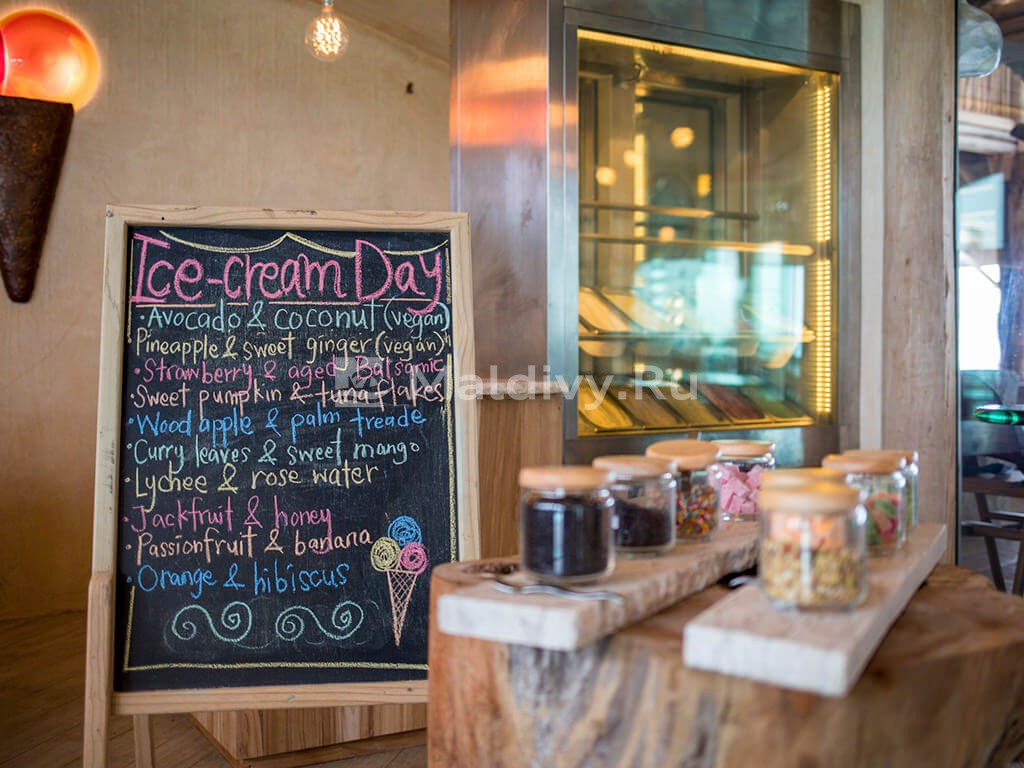 Ice-cream Day
·Avocado & coconut (vegan)
Pineapple & sweet ginger (vegan)
·Strawberry & aged Balsamic
Sweet pumpkin & tuna flakes
·Wood apple & palm treade
·Curry leaves & sweet mango
·Lychee & rose water
·Jackfruit & honey
·Passionfruit & banana
·Orange & hibiscus
Maldivy.Ru